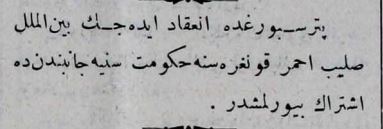 پترسبورغده انعقاد ایده‌جك بین الملل
صلیب احمر قونغره‌سنه حکومت سنیه جانبندن ده
اشتراك بیورلمشدر .